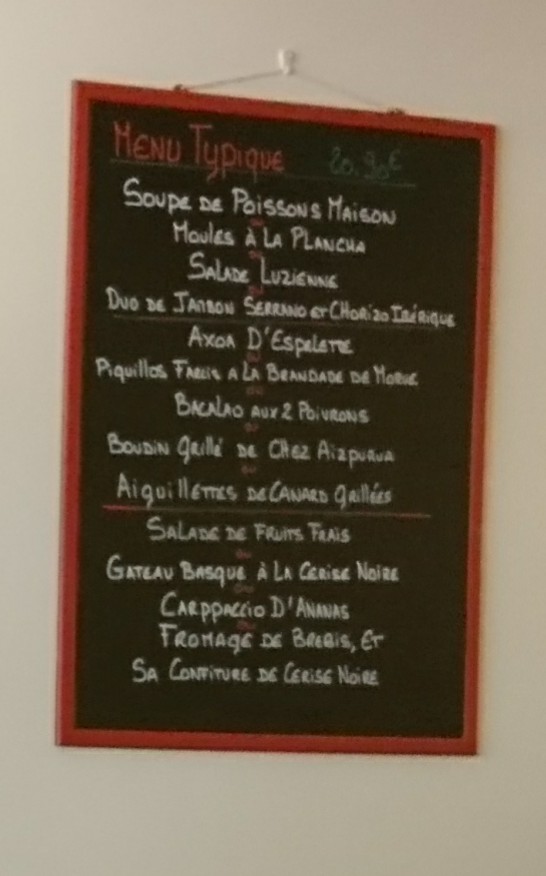 Menu Typique 20.90€
Soupe de Poissons Maison
ou
Moules à la Plancha
ou
Salade Luzienne
ou
Duo de Jambon Serrano et Chorizo Ibérique
Axoa d'Espelette
ou
Piquillos Farcis a la Brandade de Morue
ou
Bacalao aux 2 Poivrons
ou
Boudin Grillé de chez Aizpurua
ou
Aiguillettes de Canard Grillées
Salade de Fruits Frais
ou
Gateau Basque à la Cerise Noire
ou
Carppaccio d'Ananas
ou
Fromage de Brebis, et
sa Confiture de Cerise Noire